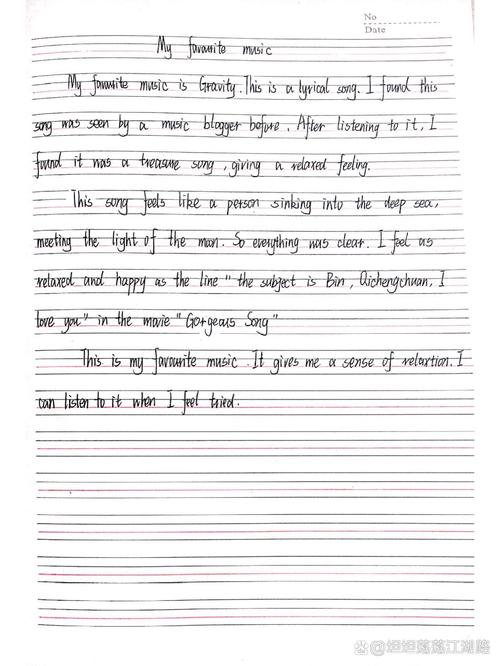 No
Date
My favourite music
My favourite music is Gravity. This is a lyrical song. I found this
song was seen by a music blogger before. After listening to it, I
found it was a treasure song, giving a relaxed feeling.
This song feels like a person sinking into the deep sea,
meeting the light of the man. So everything was clear. I feel as
relaxed and happy as the line "the subject is Bin, Qichengchuan, I
love you" in the movie "Gorgeous Song"
This is my favourite music. It gives me a sense of relaxtion. I
can listen to it when I feel tried.
@坦坦荡荡江湖路